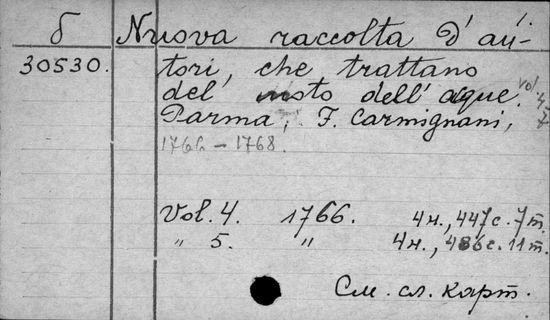 1.
б Nuova raccolta d' au-
30530. tori, che trattano
del moto dell' aque. vol. 4-
Parma, F. Carmignani, 7
1766 - 1768.
Vol. 4. 1766. 4н., 447с. 7т.
" 5. " 4н., 486с. 11т.
См. сл. карт.